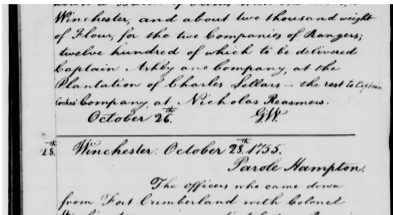 Winchester, and about two thousand weight
of Flour, for the two Companies of Rangers;
twelve hundred of which to be delivered
Captain Ashby and Company, at the
Plantation of Charles Sellars — the rest to Captain
Cockes Company, at Nicholas Reasmers.
October 26th. G.W.
28th. Winchester: October 28th. 1755.
Parole Hampton.
The Officers who came down
from Fort Cumberland with Colonel